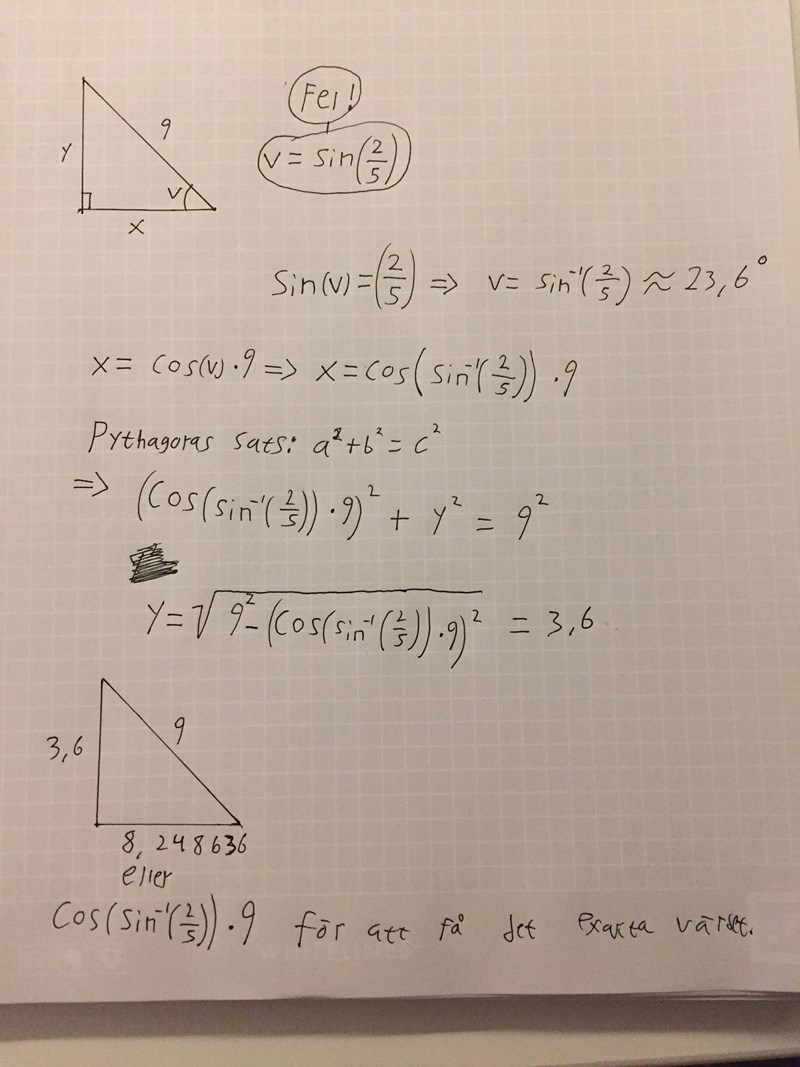 Fel!
y 9 v = sin(2/5)
v
x
Sin(v) = (2/5) => v = sin⁻¹(2/5) ≈ 23,6°
x = cos(v) · 9 => x = cos(sin⁻¹(2/5)) · 9
Pythagoras sats: a² + b² = c²
=> (Cos(sin⁻¹(2/5)) · 9)² + y² = 9²
y = √(9² - (Cos(sin⁻¹(2/5)) · 9)²) = 3,6
9
3,6
8,248636
eller
Cos(sin⁻¹(2/5)) · 9 för att få det exakta värdet.